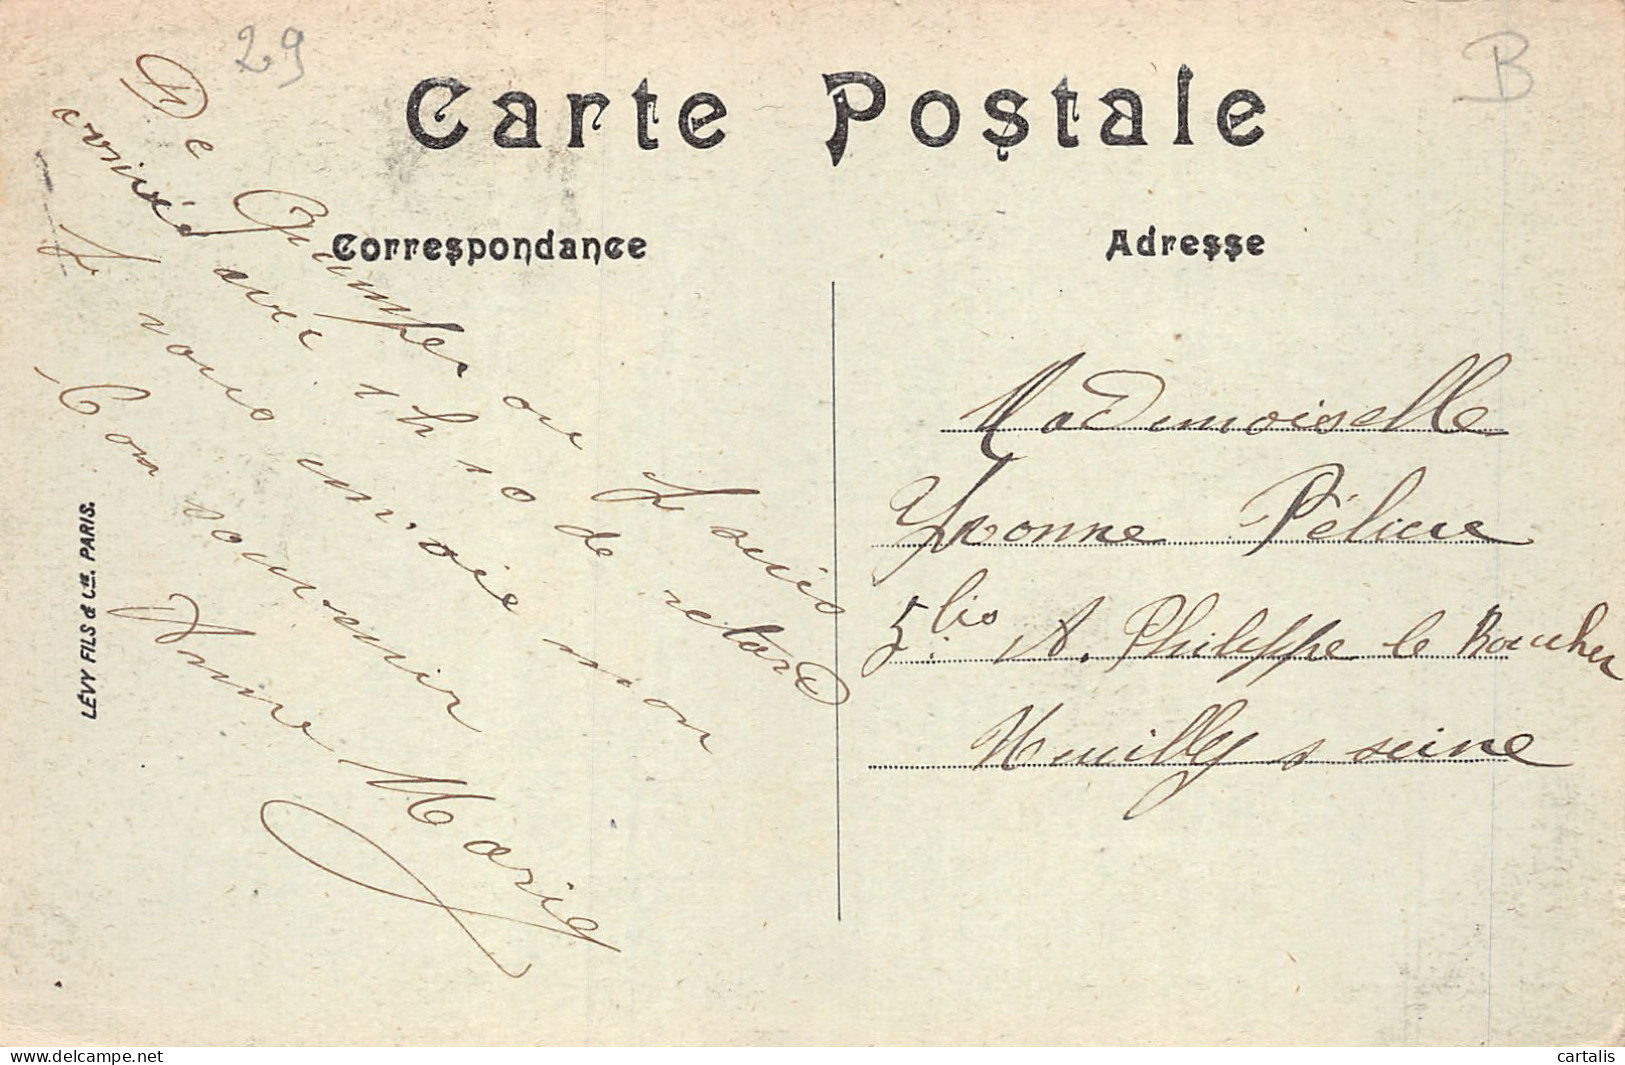 29
B
Carte Postale
Correspondance
Adresse
De Quimper ou je suis
arrivée avec 1 h 10 de retard
Je vous envoie mon
bon souvenir
Anne Marie
Mademoiselle
Yvonne
5 bis A. Philippe le Boucher
Neuilly s seine
LÉVY FILS & Cie. PARIS.
cartalis
delcampe.net